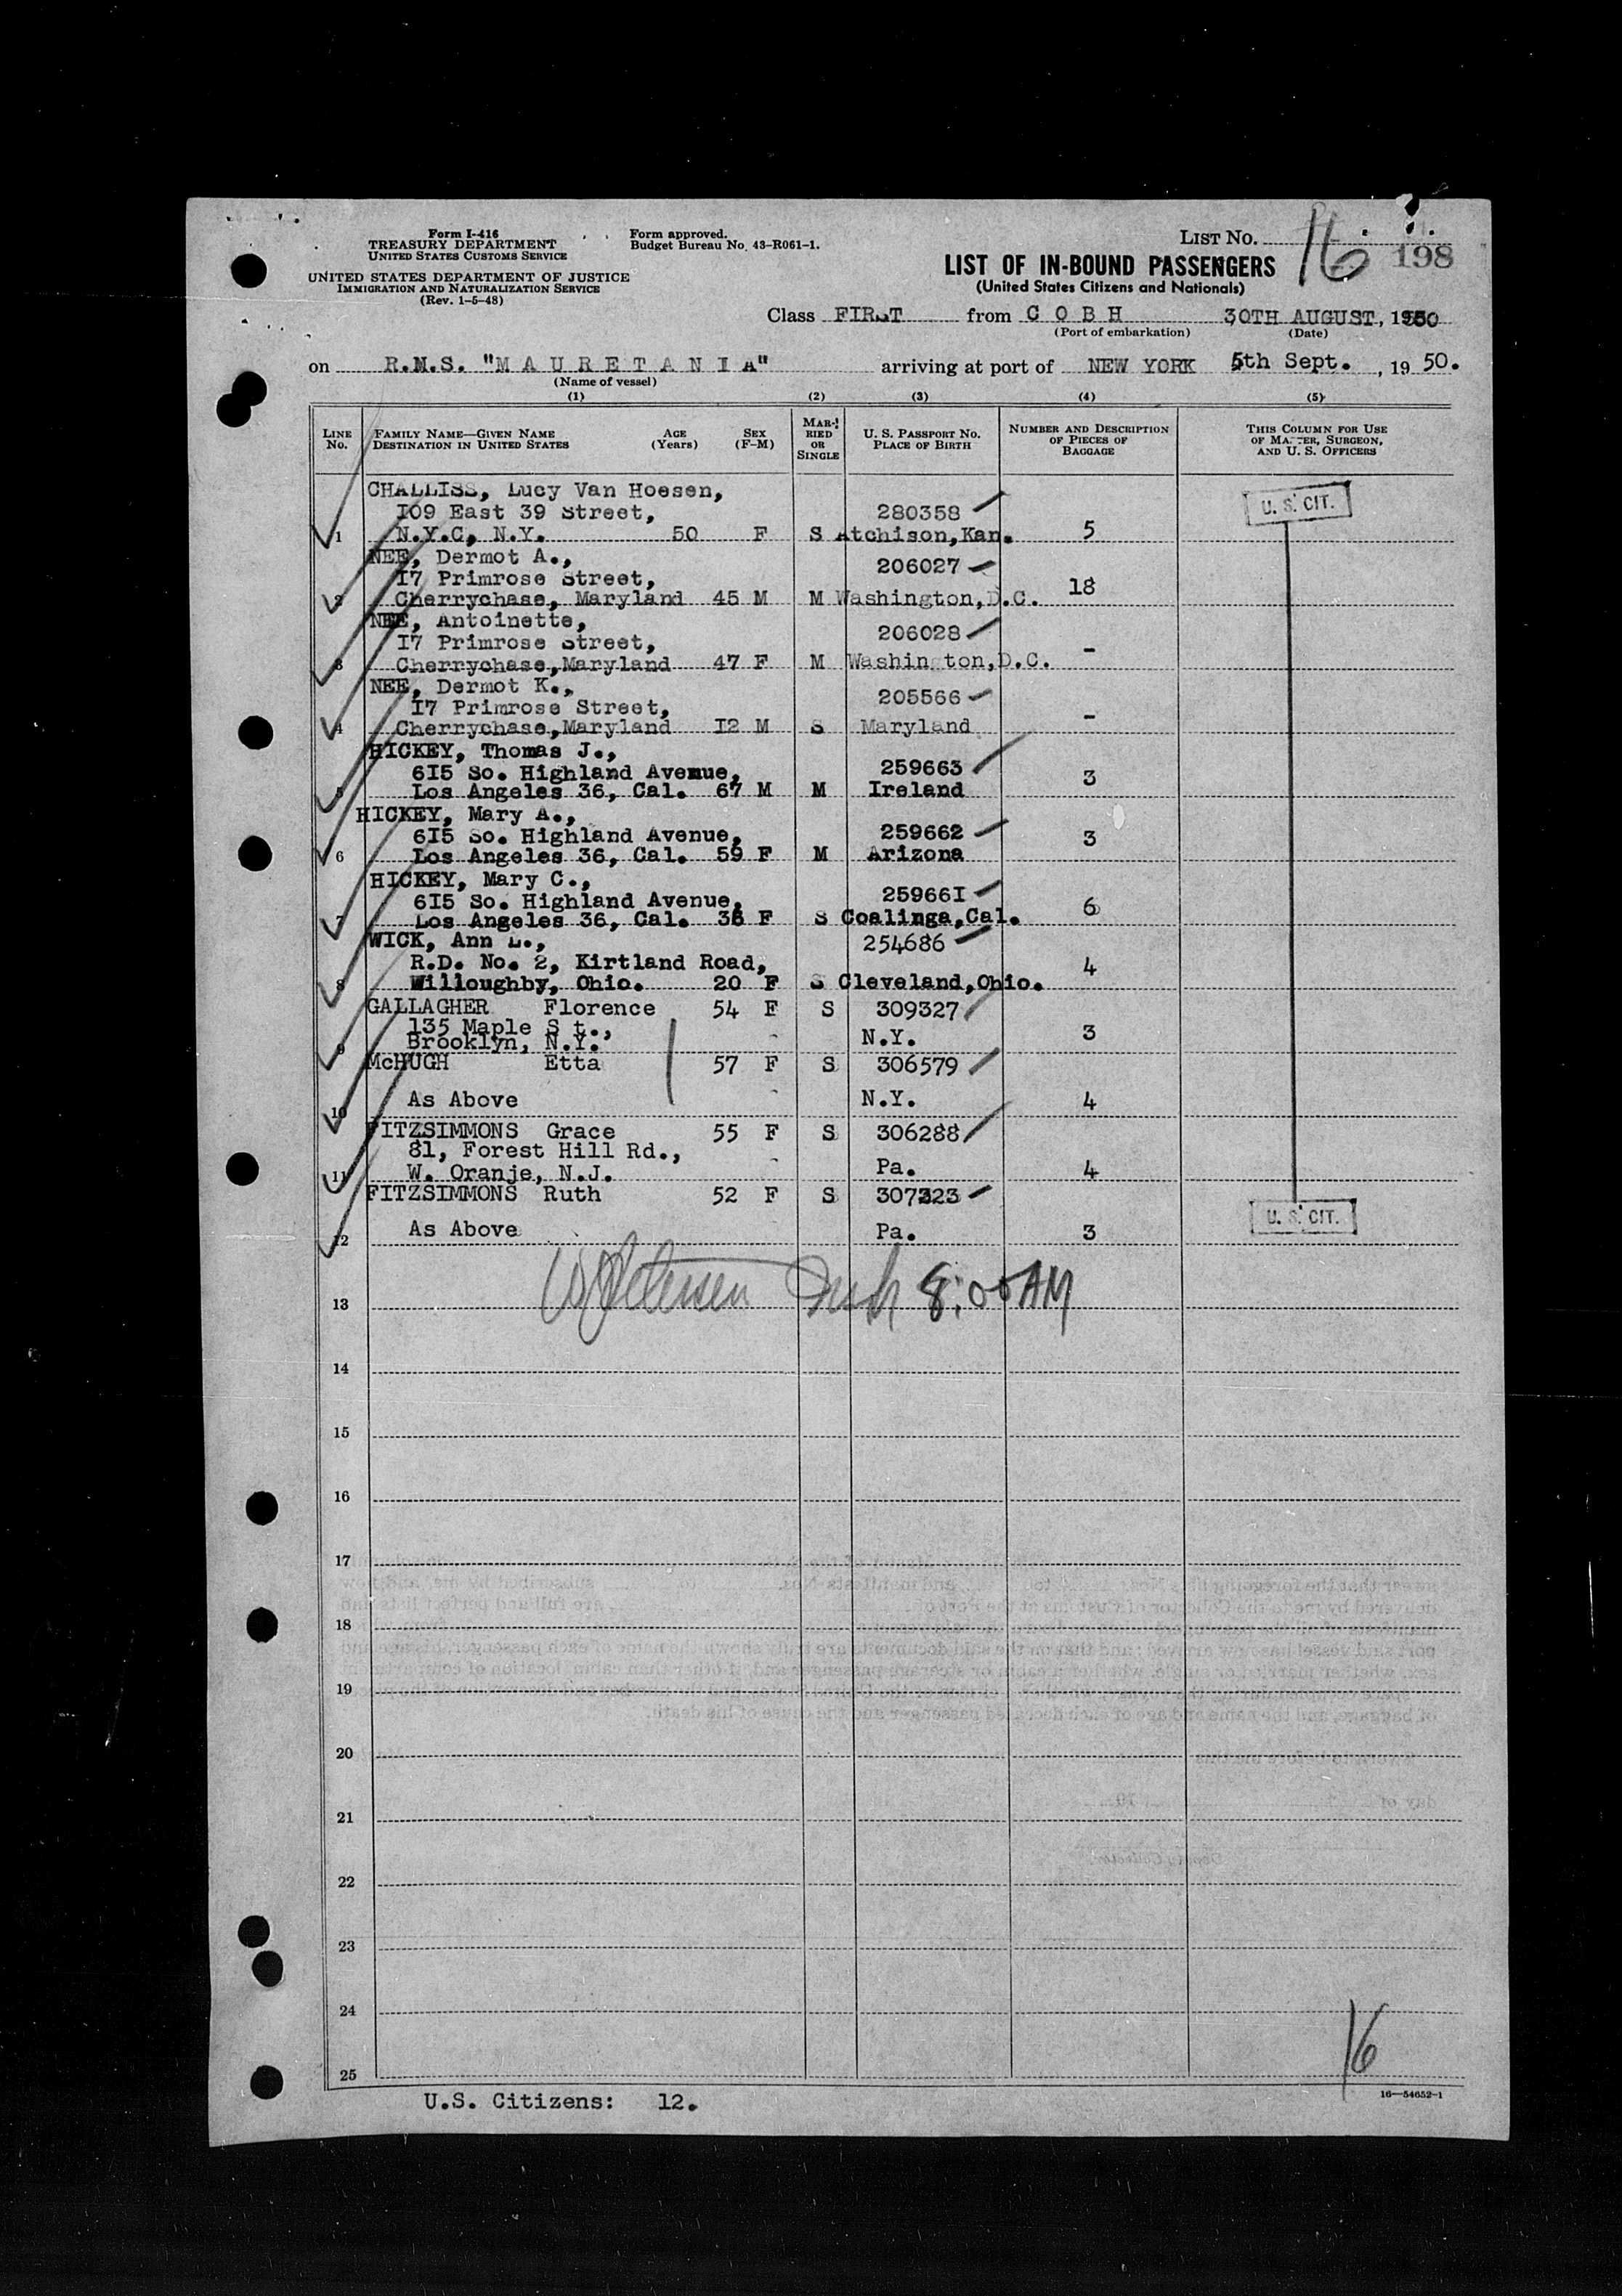 Form I-416
TREASURY DEPARTMENT
UNITED STATES CUSTOMS SERVICE
UNITED STATES DEPARTMENT OF JUSTICE
IMMIGRATION AND NATURALIZATION SERVICE
(Rev. 1-5-48)
Form approved.
Budget Bureau No. 43-R061-1.
LIST NO. 16 198
LIST OF IN-BOUND PASSENGERS
(United States Citizens and Nationals)
Class FIRST from C O B H 30TH AUGUST, 1950
(Port of embarkation) (Date)
on R.M.S. "M A U R E T A N I A" arriving at port of NEW YORK 5th Sept. , 19 50.
(Name of vessel)
(1) (2) (3) (4) (5)
LINE NO. FAMILY NAME—GIVEN NAME DESTINATION IN UNITED STATES AGE (Years) SEX (F-M) MARRIED OR SINGLE U. S. PASSPORT NO. PLACE OF BIRTH NUMBER AND DESCRIPTION OF PIECES OF BAGGAGE THIS COLUMN FOR USE OF MASTER, SURGEON, AND U. S. OFFICERS
CHALLISS, Lucy Van Hoesen,
109 East 39 Street, 280358 U. S. CIT.
1 N.Y.C, N.Y. 50 F S Atchison,Kan. 5
NEE, Dermot A., 206027
17 Primrose Street, 18
2 Cherrychase, Maryland 45 M M Washington,D.C.
NEE, Antoinette, 206028
17 Primrose Street, -
3 Cherrychase,Maryland 47 F M Washington,D.C.
NEE, Dermot K., 205566
17 Primrose Street, -
4 Cherrychase,Maryland 12 M S Maryland
HICKEY, Thomas J.,
615 So. Highland Avenue, 259663 3
5 Los Angeles 36, Cal. 67 M M Ireland
HICKEY, Mary A.,
615 So. Highland Avenue, 259662 3
6 Los Angeles 36, Cal. 59 F M Arizona
HICKEY, Mary C.,
615 So. Highland Avenue, 259661 6
7 Los Angeles 36, Cal. F S Coalinga,Cal.
WICK, Ann L., 254686
R.D. No. 2, Kirtland Road, 4
8 Willoughby, Ohio. 20 F S Cleveland,Ohio.
GALLAGHER Florence 54 F S 309327
135 Maple S t., 3
9 Brooklyn, N.Y. N.Y.
McHUGH Etta 57 F S 306579
10 As Above N.Y. 4
FITZSIMMONS Grace 55 F S 306288
81, Forest Hill Rd.,
11 W. Oranje, N.J. Pa. 4
FITZSIMMONS Ruth 52 F S 307323
12 As Above Pa. 3 U. S. CIT.
8:00 AM
13
14
15
16
17
18
19
20
21
22
23
24
25
16
16—54652-1
U.S. Citizens: 12.